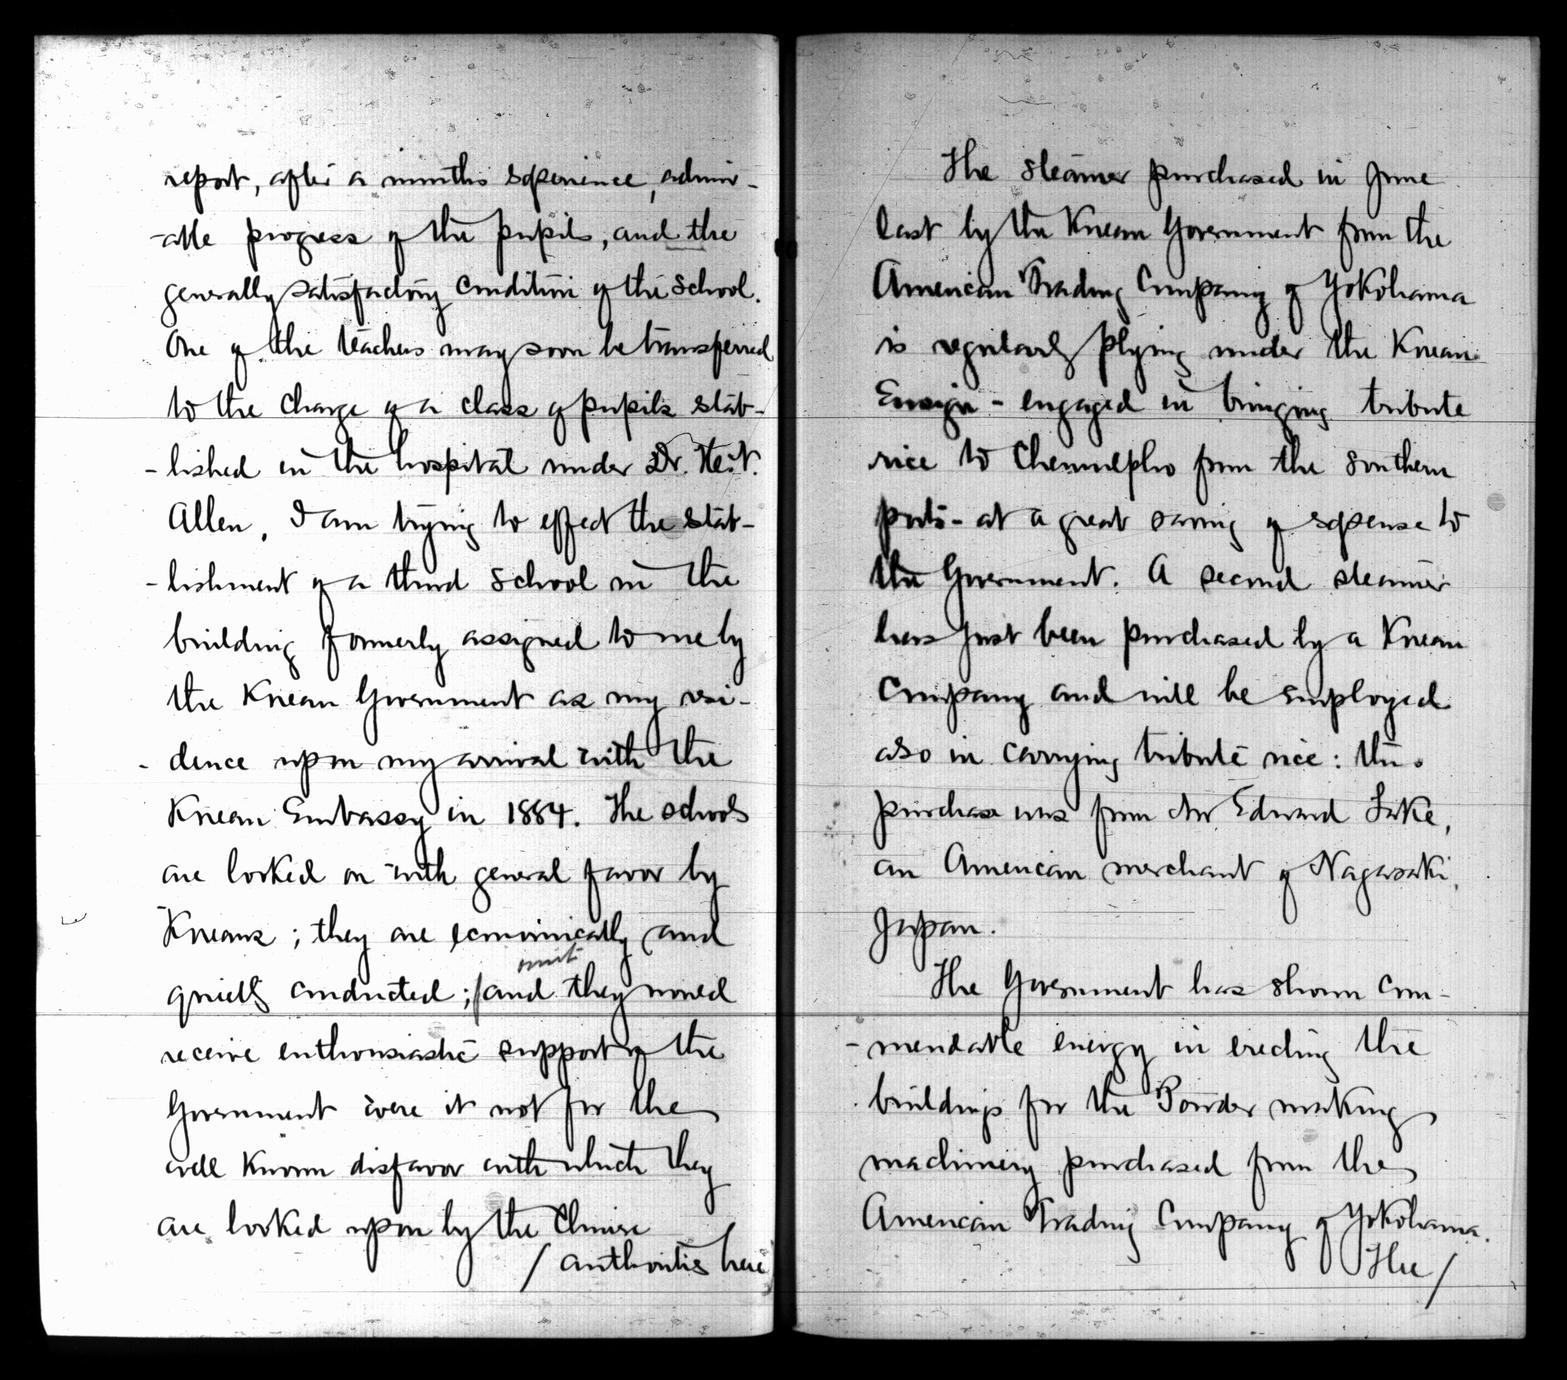 report, after a months experience, admir-
-able progress of the pupils, and the
generally satisfactory condition of the School.
One of the teachers may soon be transferred
to the charge of a class of pupils estab-
-lished in the hospital under Dr. H. N.
Allen, I am trying to effect the estab-
-lishment of a third School in the
building formerly assigned to me by
the Korean Government as my resi-
-dence upon my arrival with the
Korean Embassy in 1884. The schools
are looked on with general favor by
Koreans; they are economically and
omit
quietly conducted; / and they would
receive enthusiastic support of the
Government were it not for the
well known disfavor with which they
are looked upon by the Chinese
/ authorities here
The steamer purchased in June
last by the Korean Government from the
American Trading Company of Yokohama
is regularly plying under the Korean
Ensign - engaged in bringing tribute
rice to Chemulpho from the southern
ports - at a great saving of expense to
the Government. A second steamer
has just been purchased by a Korean
Company and will be employed
also in carrying tribute rice: the
purchase was from Mr Edward Lake,
an American merchant of Nagasaki,
Japan.
The Government has shown com-
-mendable energy in erecting the
buildings for the Powder making
machinery purchased from the
American Trading Company of Yokohama.
The /